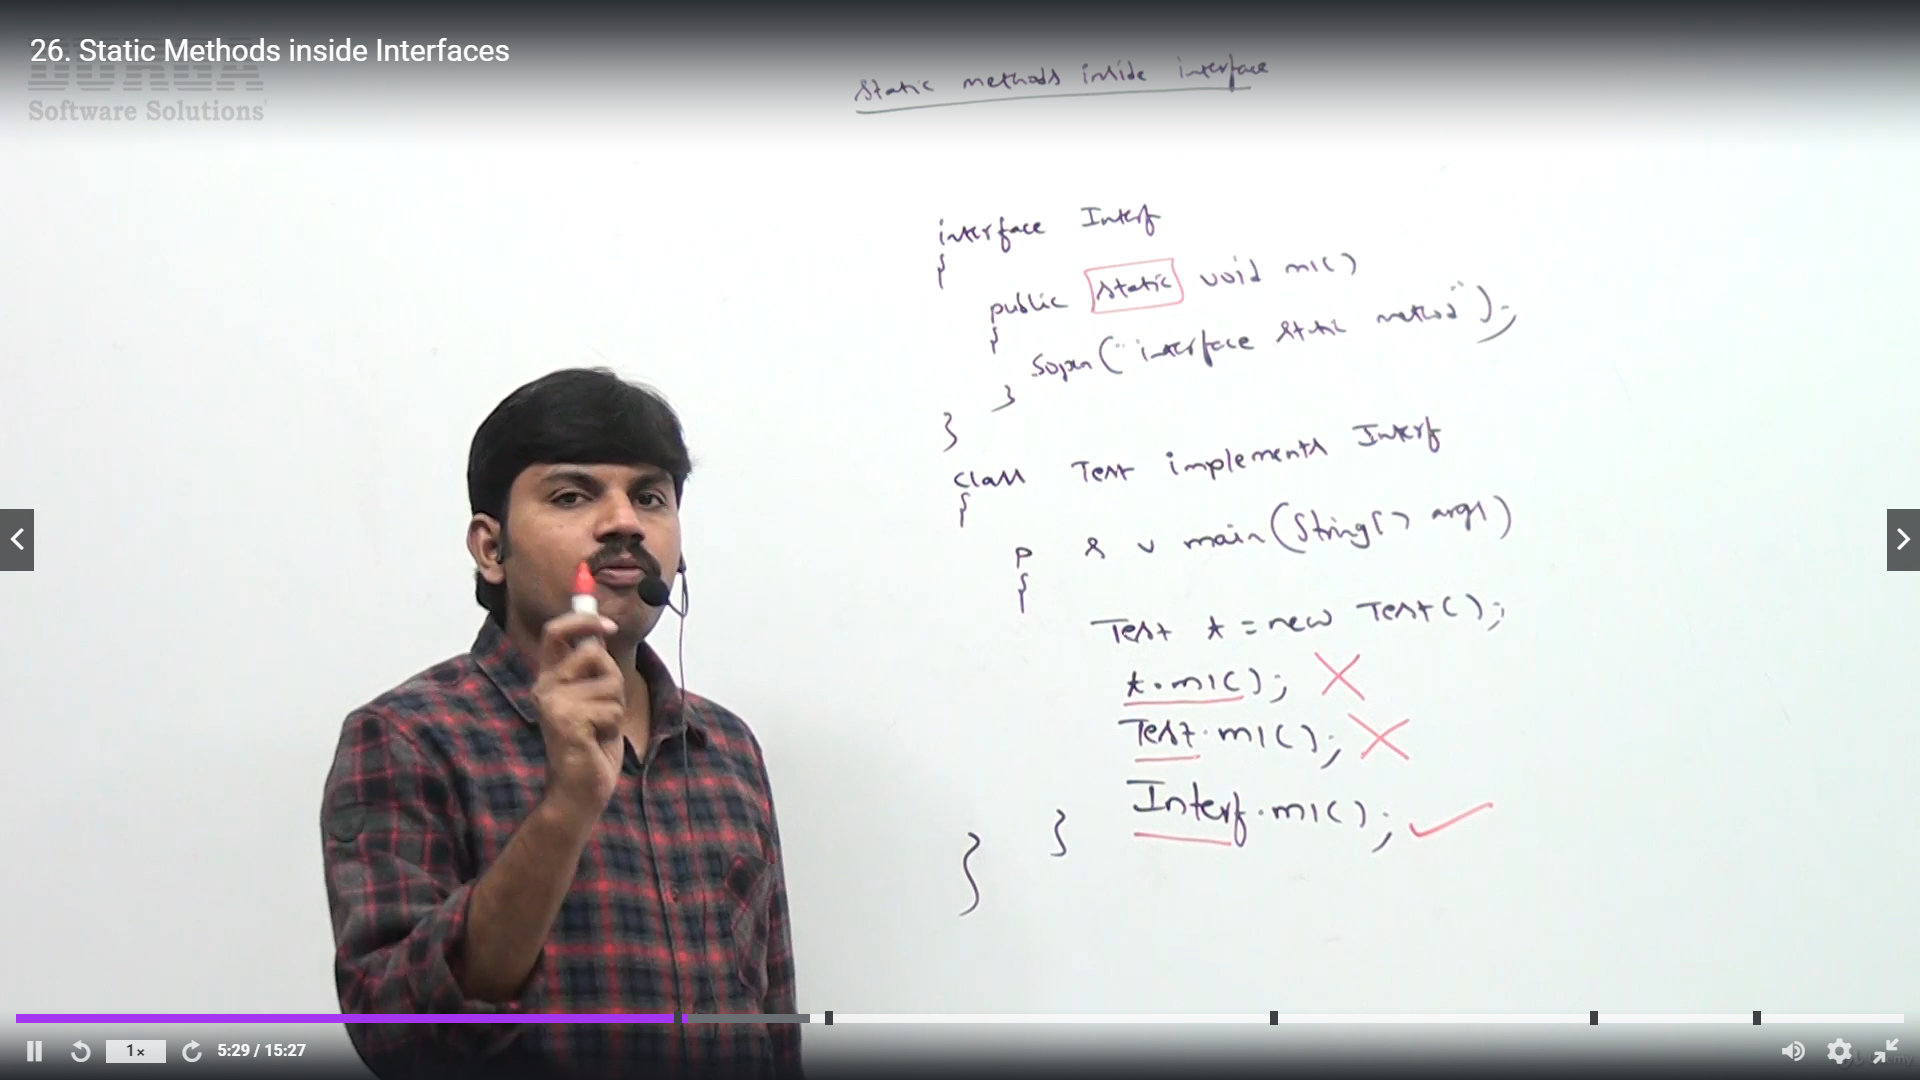 26. Static Methods inside Interfaces
DURGA
Software Solutions
Static methods inside interface
interface Interf
{
public static void m1()
{
Sopln("interface static method");
}
}
class Test implements Interf
{
p s v main(String[] args)
{
Test t = new Test();
t.m1();
Test.m1();
Interf.m1();
}
}
1×
5:29 / 15:27